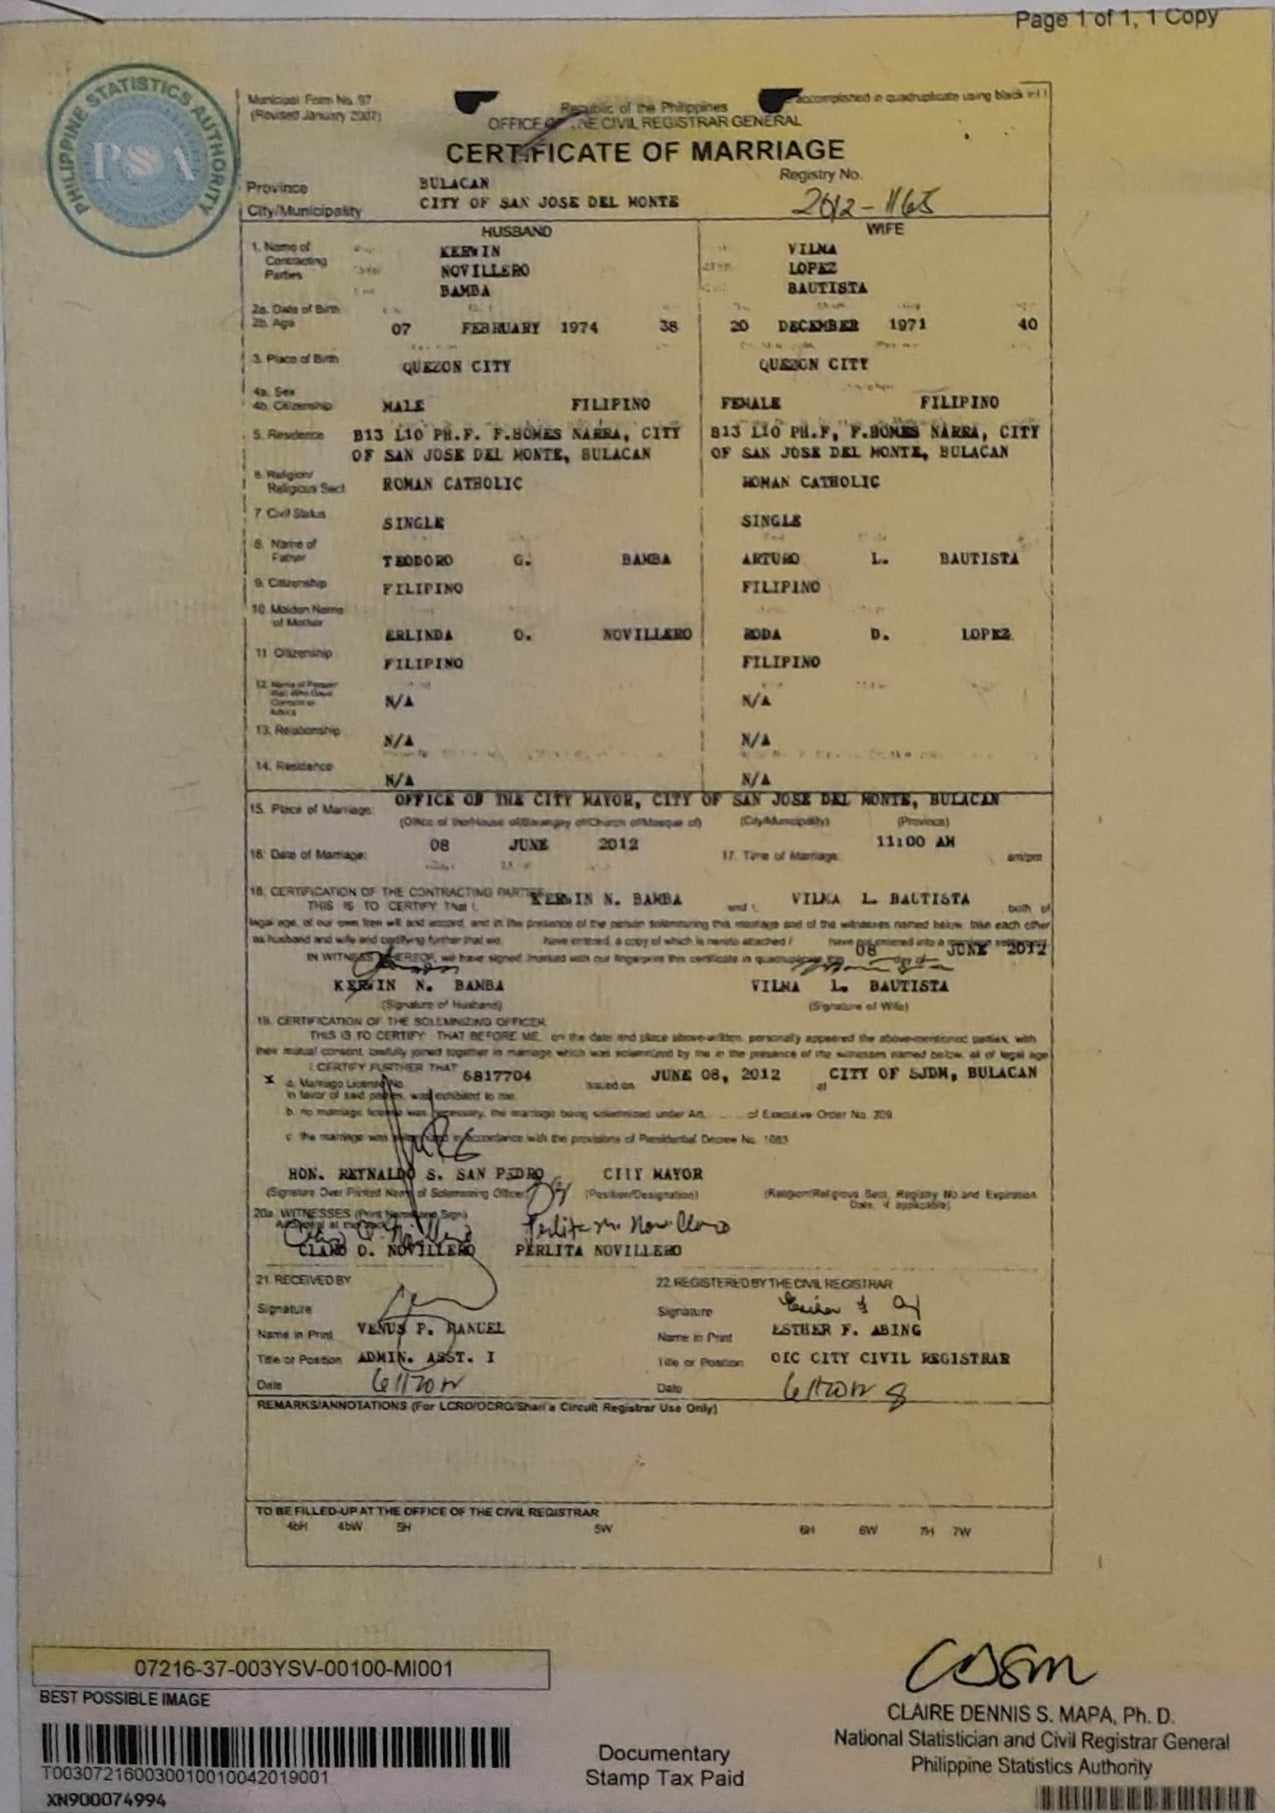 Page 1 of 1, 1 Copy
PHILIPPINE STATISTICS AUTHORITY
PSA
Municipal Form No. 97
(Revised January 2007)
accomplished in quadruplicate using black ink
Republic of the Philippines
OFFICE OF THE CIVIL REGISTRAR GENERAL
CERTIFICATE OF MARRIAGE
Province BULACAN
Registry No.
City/Municipality CITY OF SAN JOSE DEL MONTE 2012-1165
HUSBAND WIFE
1. Name of Contracting Parties
KERWIN VILMA
NOVILLERO LOPEZ
BAMBA BAUTISTA
2a. Date of Birth
2b. Age 07 FEBRUARY 1974 38 20 DECEMBER 1971 40
3. Place of Birth QUEZON CITY QUEZON CITY
4a. Sex
4b. Citizenship MALE FILIPINO FEMALE FILIPINO
5. Residence B13 L10 PH.F. F.HOMES NARRA, CITY B13 L10 PH.F, F.HOMES NARRA, CITY
OF SAN JOSE DEL MONTE, BULACAN OF SAN JOSE DEL MONTE, BULACAN
6. Religion/
Religious Sect ROMAN CATHOLIC ROMAN CATHOLIC
7. Civil Status SINGLE SINGLE
8. Name of
Father TEODORO G. BAMBA ARTURO L. BAUTISTA
9. Citizenship FILIPINO FILIPINO
10. Maiden Name
of Mother ERLINDA O. NOVILLERO RODA D. LOPEZ
11. Citizenship FILIPINO FILIPINO
N/A N/A
13. Relationship N/A N/A
14. Residence N/A N/A
15. Place of Marriage: OFFICE OF THE CITY MAYOR, CITY OF SAN JOSE DEL MONTE, BULACAN
(Office of the/House of/Barangay of/Church of/Mosque of) (City/Municipality) (Province)
16. Date of Marriage: 08 JUNE 2012 17. Time of Marriage: 11:00 AM am/pm
18. CERTIFICATION OF THE CONTRACTING PARTIES
THIS IS TO CERTIFY That I, KERWIN N. BAMBA and I, VILMA L. BAUTISTA both of
legal age, of our own free will and accord, and in the presence of the person solemnizing this marriage and of the witnesses named below, take each other
as husband and wife and certifying further that we have entered, a copy of which is hereto attached / have not entered into a marriage
IN WITNESS WHEREOF, we have signed/marked with our fingerprint this certificate in quadruplicate this 08 day of JUNE 2012
KERWIN N. BAMBA VILMA L. BAUTISTA
(Signature of Husband) (Signature of Wife)
19. CERTIFICATION OF THE SOLEMNIZING OFFICER
THIS IS TO CERTIFY: THAT BEFORE ME, on the date and place above-written, personally appeared the above-mentioned parties, with
their mutual consent, lawfully joined together in marriage which was solemnized by me in the presence of the witnesses named below, all of legal age
I CERTIFY FURTHER THAT
x a. Marriage License No. 6817704 issued on JUNE 08, 2012 at CITY OF SJDM, BULACAN
in favor of said parties, was exhibited to me.
b. no marriage license was necessary, the marriage being solemnized under Art. of Executive Order No. 209
c. the marriage was solemnized in accordance with the provisions of Presidential Decree No. 1083
HON. REYNALDO S. SAN PEDRO CITY MAYOR
(Signature Over Printed Name of Solemnizing Officer) (Position/Designation) (Religion/Religious Sect, Registry No and Expiration
Date, if applicable)
20a. WITNESSES (Print Name and Sign)
Perlita M. Novillero
CLARO O. NOVILLERO PERLITA NOVILLERO
21. RECEIVED BY 22. REGISTERED BY THE CIVIL REGISTRAR
Signature Signature
Name in Print VENUS P. MANUEL Name in Print ESTHER F. ABING
Title or Position ADMIN. ASST. I Title or Position OIC CITY CIVIL REGISTRAR
Date Date
REMARKS/ANNOTATIONS (For LCRO/OCRG/Shari'a Circuit Registrar Use Only)
TO BE FILLED-UP AT THE OFFICE OF THE CIVIL REGISTRAR
4bH 4bW 5H 5W 6H 6W 7H 7W
07216-37-003YSV-00100-MI001
BEST POSSIBLE IMAGE
T003072160030010010042019001
XN900074994
Documentary
Stamp Tax Paid
CLAIRE DENNIS S. MAPA, Ph. D.
National Statistician and Civil Registrar General
Philippine Statistics Authority